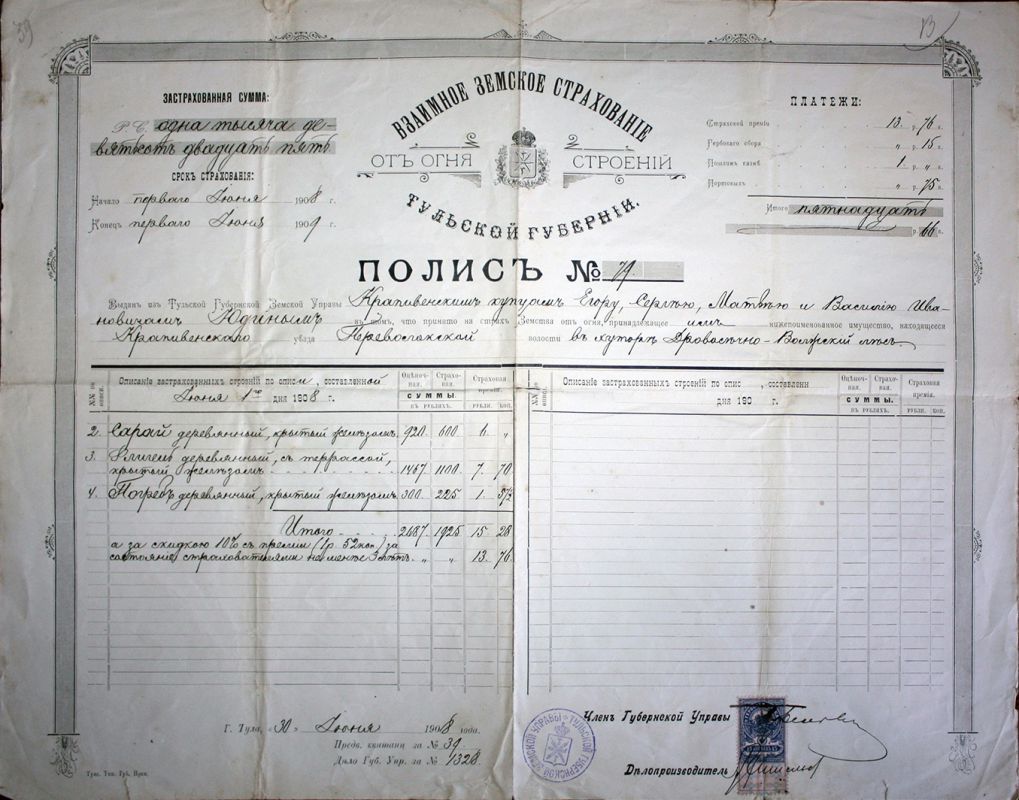 39
ЗАСТРАХОВАННАЯ СУММА:
Р. С. одна тысяча де-
вятьсотъ двадцать пять
СРОКЪ СТРАХОВАНІЯ:
Начало перваго Іюня 1908 г.
Конецъ перваго Іюня 1909 г.
ВЗАИМНОЕ ЗЕМСКОЕ СТРАХОВАНІЕ
ОТЪ ОГНЯ СТРОЕНІЙ
ТУЛЬСКОЙ ГУБЕРНІИ.
ПЛАТЕЖИ:
Страховой преміи 13 р. 76 к.
Гербоваго сбора " р. 15 к.
Пошлинъ казнѣ 1 р. " к.
Портовыхъ " р. 75 к.
Итого пятнадцать
р. 66 к.
ПОЛИСЪ № 79.
Выданъ изъ Тульской Губернской Земской Управы Крапивенскимъ купцамъ Егору, Сергѣю, Матвѣю и Василію Ива-
новичамъ Юдинымъ въ томъ, что принято на страхъ Земства отъ огня, принадлежащее имъ нижепоименованное имущество, находящееся
Крапивенскаго уѣзда волости въ хуторѣ
№№ по описи.
Описаніе застрахованныхъ строеній по описи, составленной
Іюня 1го дня 1908 г.
Оцѣноч-ная. Страхо-вая. Страховая премія.
СУММЫ
въ рубляхъ. рубли. коп.
2. Сарай деревянный, крытый желѣзомъ 920. 600 6 "
3. Флигель деревянный, съ террассой,
крытый желѣзомъ 1467 1100 7. 70
4. Погребъ деревянный, крытый желѣзомъ 300. 225 1. 57½
Итого 2687. 1925 15 28
а за скидкою 10% съ преміи (1р. 52коп.) за
состояніе страхователями не менѣе 3 лѣтъ. " " 13. 76
№№ по описи.
Описаніе застрахованныхъ строеній по опис , составленн
дня 190 г.
Оцѣноч-ная. Страхо-вая. Страховая премія.
СУММЫ
въ рубляхъ. рубли. коп.
Г. Тула, «30» Іюня 1908 года.
Предв. квитанц. за № 39.
Дѣло Губ. Упр. за № 1328
Тул. Тип. Губ. Прав.
Членъ Губернской Управы
Дѣлопроизводитель
ТУЛЬСКОЙ ГУБЕРНСКОЙ ЗЕМСКОЙ УПРАВЫ